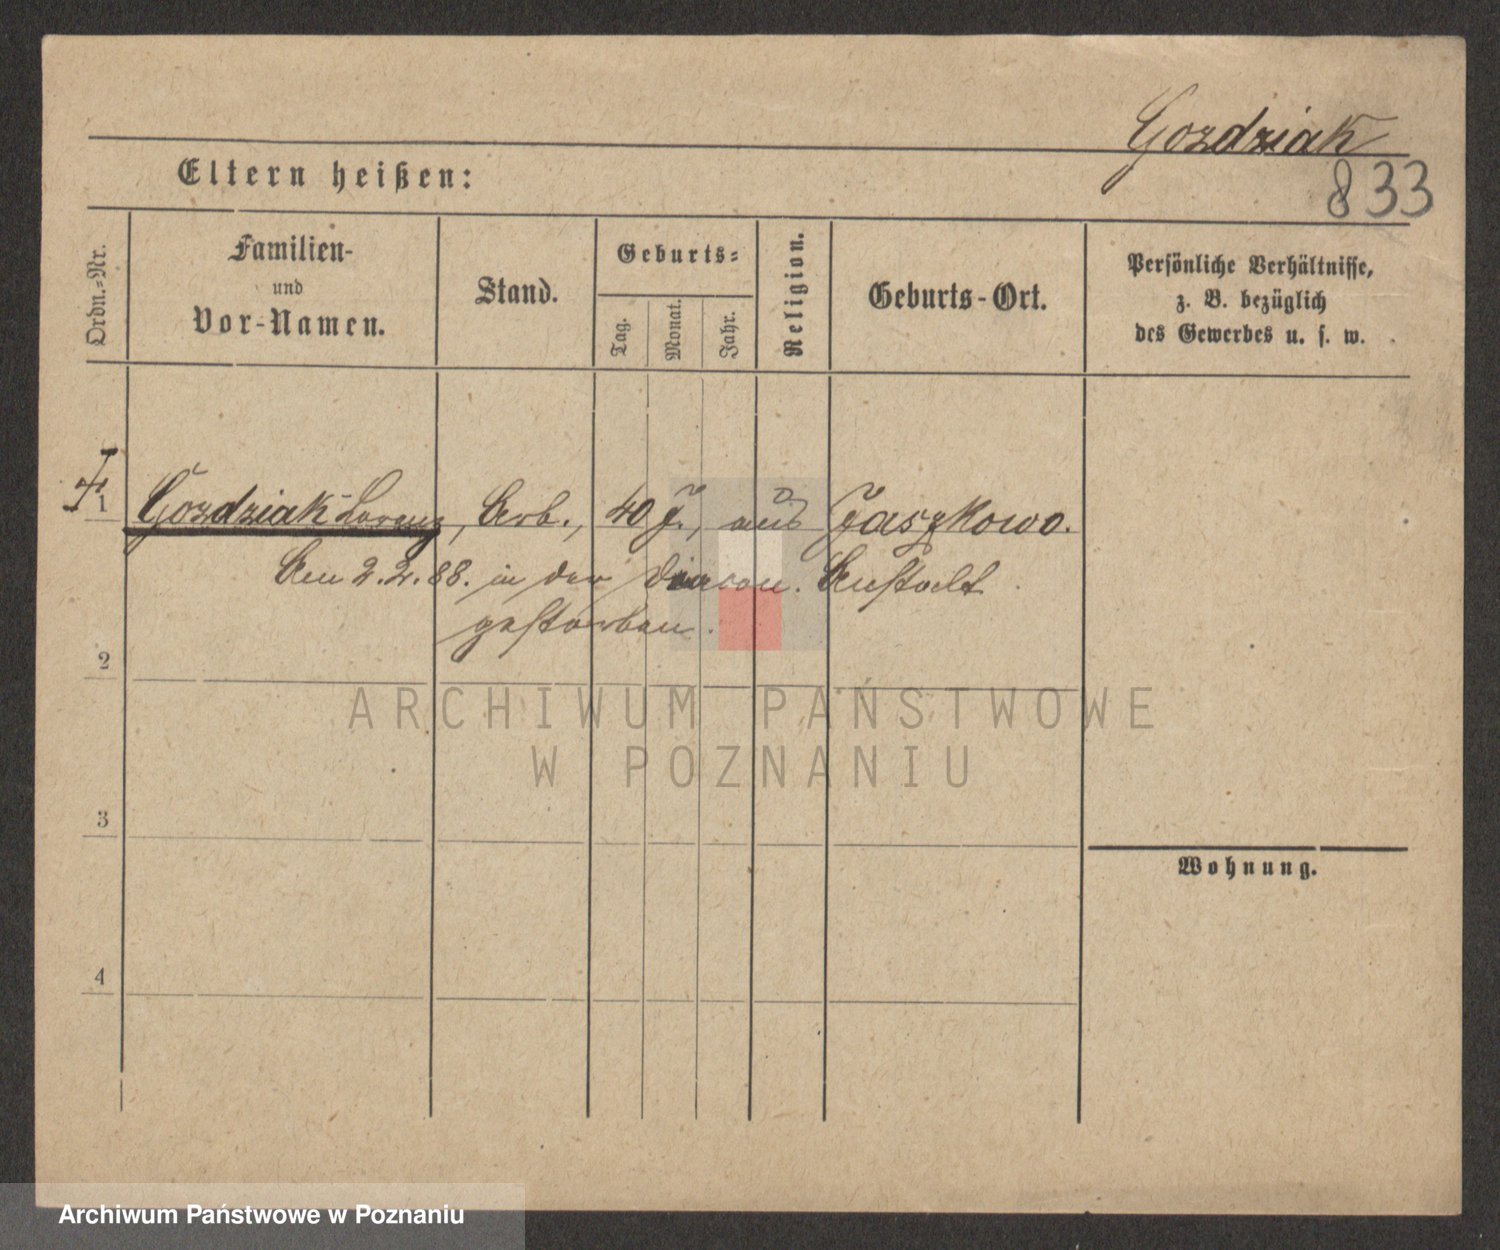 Gozdziak
833
Eltern heißen:
Ordn.-Nr.
Familien-
und
Vor-Namen.
Stand.
Geburts-
Tag.
Monat.
Jahr.
Religion.
Geburts-Ort.
Persönliche Verhältnisse,
z. B. bezüglich
des Gewerbes u. s. w.
1 Gozdziak Lorenz, Arb., 40 J., aus Jaszkowo.
Am 2.2.88. in der Diacon. Anstalt
gestorben.
2
ARCHIWUM PAŃSTWOWE
W POZNANIU
3
Wohnung.
4
Archiwum Państwowe w Poznaniu